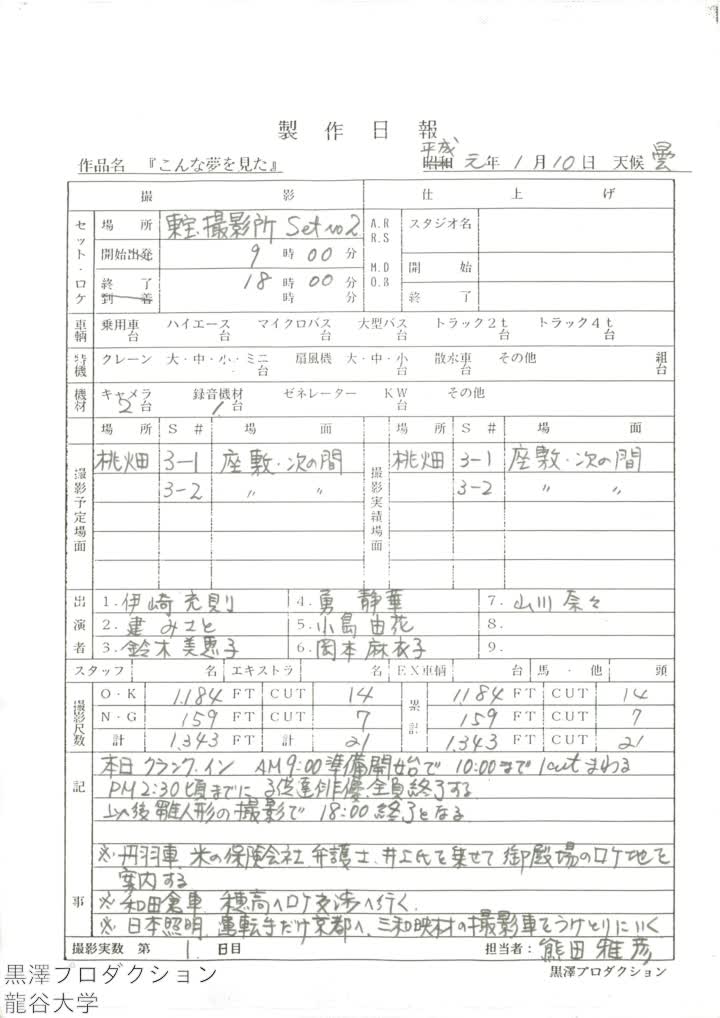 製作日報
作品名 『こんな夢を見た』 平成 昭和 元年 1月10日 天候 曇
撮影 仕上げ
セット・ロケ 場所 東宝撮影所 Set no2 A.R R.S スタジオ名
開始出発 9時00分 M.D D.B 開始
終了 18時00分 終了
到着 時 分
車輌 乗用車 台 ハイエース 台 マイクロバス 台 大型バス 台 トラック2t 台 トラック4t 台
特機 クレーン 大・中・小・ミニ 台 扇風機 大・中・小 台 散水車 台 その他 組 台
機材 キャメラ 2台 録音機材 1台 ゼネレーター KW 台 その他
場所 S# 場面 場所 S# 場面
撮影予定場面 桃畑 3-1 座敷・次の間 撮影実績場面 桃畑 3-1 座敷・次の間
3-2 〃 〃 3-2 〃 〃
出演者 1. 伊崎充則 4. 勇静華 7. 山川奈々
2. 建みさと 5. 小島由花 8.
3. 鈴木美恵子 6. 岡本麻衣子 9.
スタッフ 名 エキストラ 名 EX車輌 台 馬・他 頭
撮影尺数 O・K 1,184 FT CUT 14 累計 1,184 FT CUT 14
N・G 159 FT CUT 7 159 FT CUT 7
計 1,343 FT 計 21 1,343 FT CUT 21
記事 本日クランク・イン AM9:00準備開始で 10:00まで1cutまわる
PM2:30頃までに子供達俳優、全員終了する
以後雛人形の撮影で 18:00終了となる
※丹羽車、米の保険会社、弁護士、井上氏を乗せて御殿場のロケ地を
案内する
※和田倉車 穂高へロケ交渉へ行く
※日本照明、運転手だけ京都へ、三和映材の撮影車をうけとりにいく
撮影実数 第 1 日目 担当者：熊田雅彦
黒澤プロダクション
黒澤プロダクション
龍谷大学